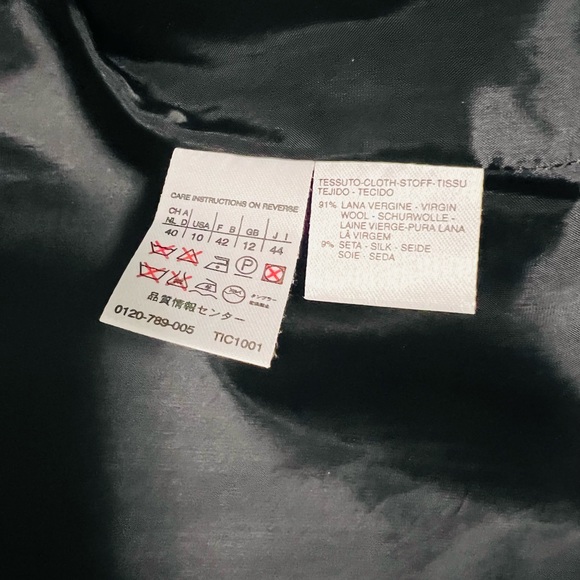 CARE INSTRUCTIONS ON REVERSE
CH A
NL D USA F B GB J I
40 10 42 12 44
P
品質情報センター
0120-789-005 TIC1001
TESSUTO-CLOTH-STOFF-TISSU
TEJIDO - TECIDO
91% LANA VERGINE - VIRGIN
WOOL - SCHURWOLLE -
LAINE VIERGE-PURA LANA
LÃ VIRGEM
9% SETA - SILK - SEIDE
SOIE - SEDA